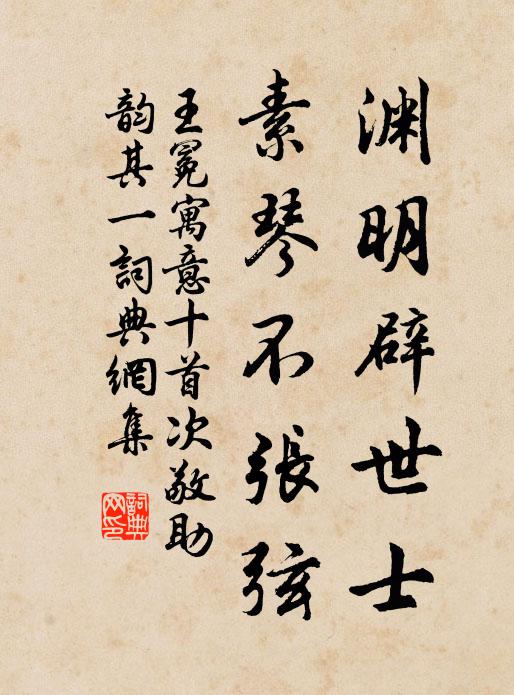 渊明辟世士
素琴不張弦
王冕寓意十首次敬助
韵其一詞典網集
詞典
网印